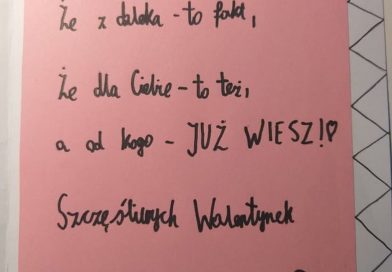 Że z daleka - to fakt,
Że dla Ciebie - to też,
a od kogo - JUŻ WIESZ!♡
Szczęśliwych Walentynek